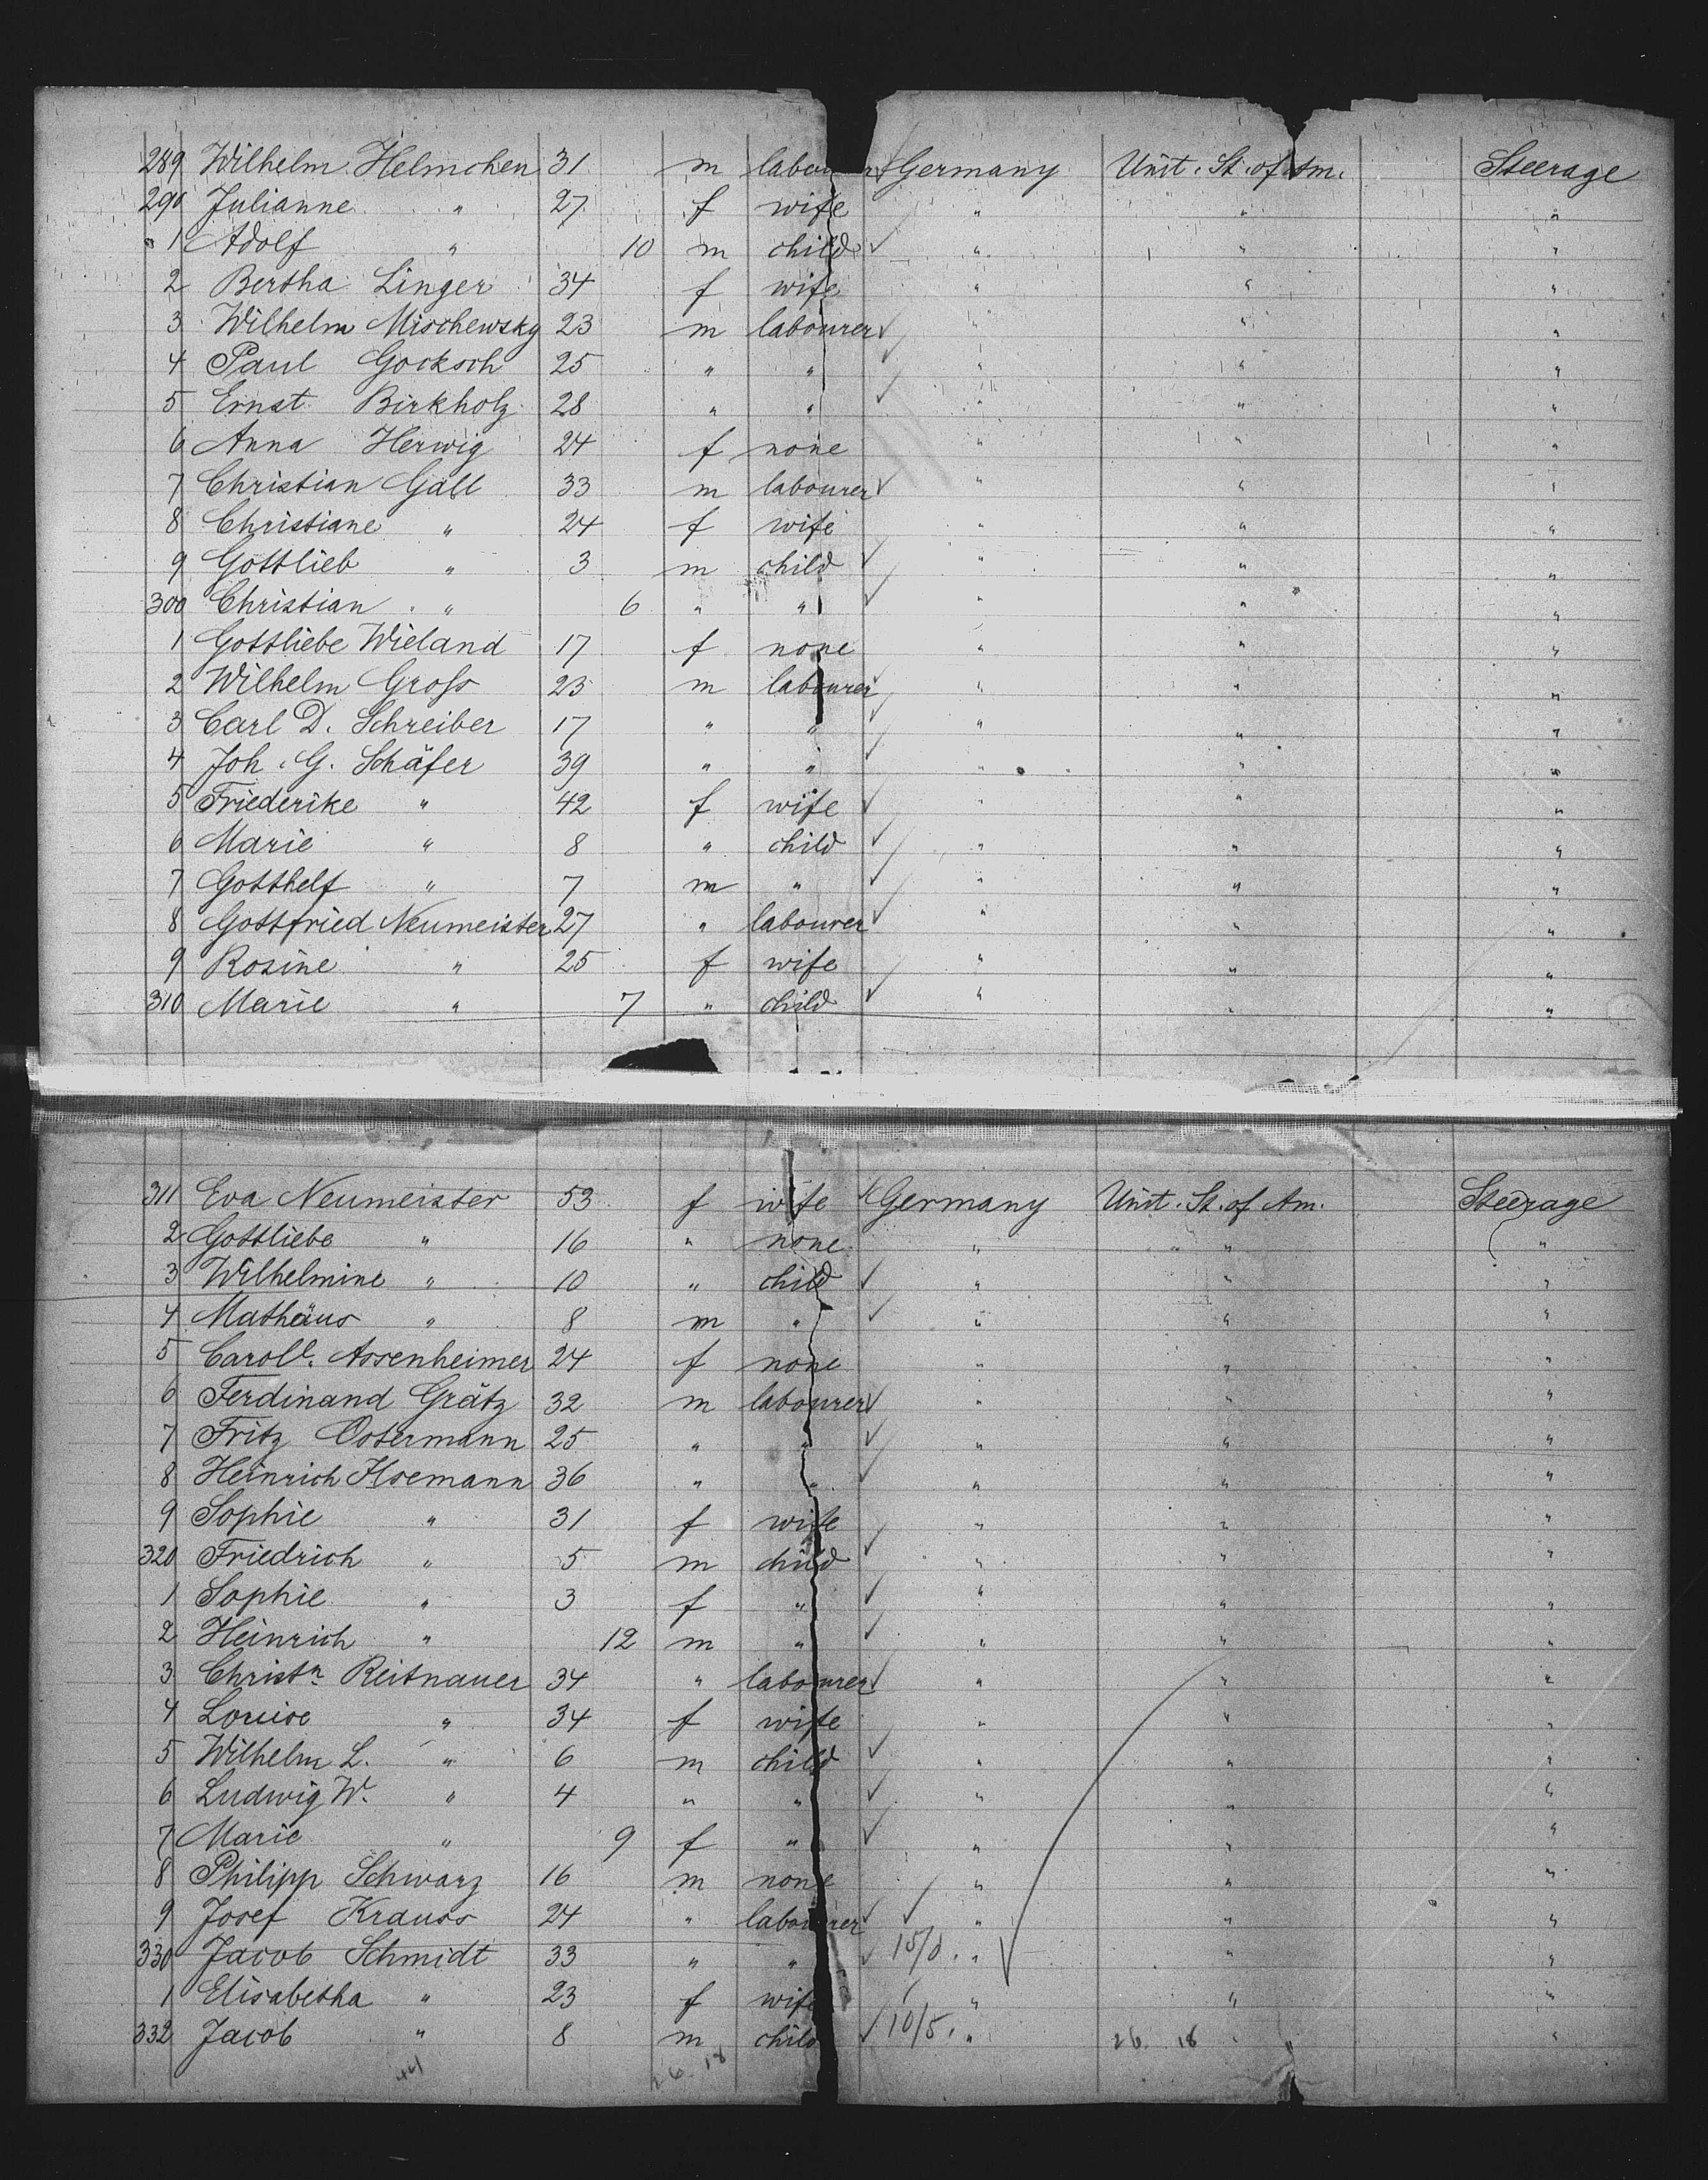 289 Wilhelm Helmchen 31 m labourer Germany Unit. St. of Am. Steerage
290 Julianne " 27 f wife " " "
" 1 Adolf " 10 m child " " "
2 Bertha Linger 34 f wife " " "
3 Wilhelm Mischewsky 23 m labourer " " "
4 Paul Gocksch 25 " " " " "
5 Ernst Birkholz 28 " " " " "
6 Anna Herwig 24 f none " " "
7 Christian Gall 33 m labourer " " "
8 Christiane " 24 f wife " " "
9 Gottlieb " 3 m child " " "
300 Christian " 6 " " " " "
1 Gottliebe Wieland 17 f none " " "
2 Wilhelm Groſs 23 m labourer " " "
3 Carl D. Schreiber 17 " " " " "
4 Joh. G. Schäfer 39 " " " " "
5 Friederike " 42 f wife " " "
6 Marie " 8 " child " " "
7 Gotthelf " 7 m " " " "
8 Gottfried Neumeister 27 " labourer " " "
9 Rosine " 25 f wife " " "
310 Marie " 7 " child " " "
311 Eva Neumeister 53 f wife Germany Unit. St. of Am. Steerage
2 Gottliebe " 16 " none " " "
3 Wilhelmine " 10 " child " " "
4 Mathäus " 8 m " " " "
5 Caroll. Assenheimer 24 f none " " "
6 Ferdinand Grätz 32 m labourer " " "
7 Fritz Ostermann 25 " " " " "
8 Heinrich Ilsemann 36 " " " " "
9 Sophie " 31 f wife " " "
320 Friedrich " 5 m child " " "
1 Sophie " 3 f " " " "
2 Heinrich " 12 m " " " "
3 Christn. Reitnauer 34 " labourer " " "
4 Louise " 34 f wife " " "
5 Wilhelm L. " 6 m child " " "
6 Ludwig W. " 4 " " " " "
7 Marie " 9 f " " " "
8 Philipp Schwarz 16 m none " " "
9 Josef Krauss 24 " labourer " " "
330 Jacob Schmidt 33 " " " " "
1 Elisabetha " 23 f wife " " "
332 Jacob " 8 m child 10/5. " 26 18 " "
44 26 18